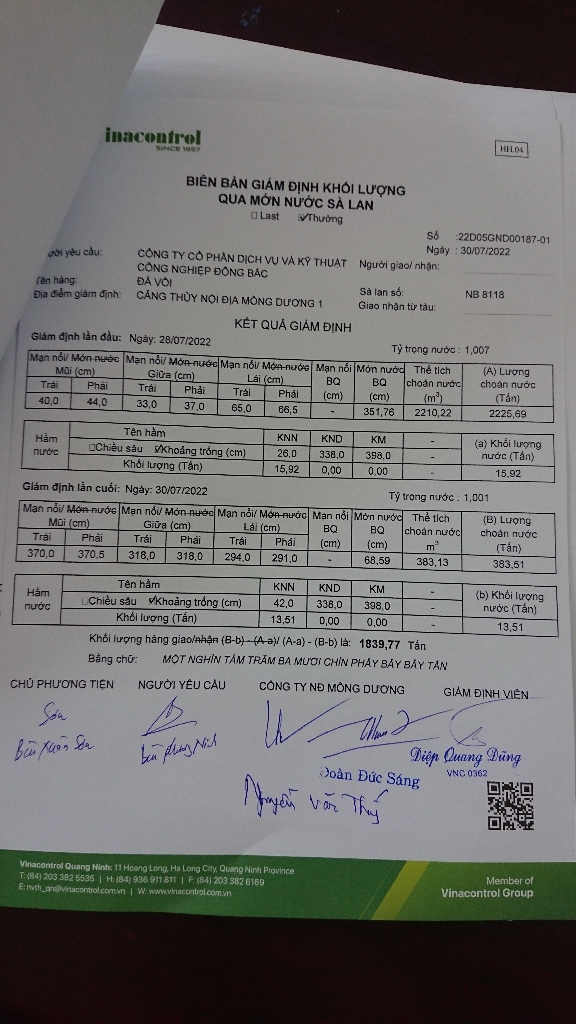 inacontrol
SINCE 1957
HH.04
BIÊN BẢN GIÁM ĐỊNH KHỐI LƯỢNG
QUA MỚN NƯỚC SÀ LAN
Last Thường
Số :22D05GND00187-01
Ngày : 30/07/2022
ười yêu cầu: CÔNG TY CỔ PHẦN DỊCH VỤ VÀ KỸ THUẬT Người giao/ nhận:
CÔNG NGHIỆP ĐÔNG BẮC
Tên hàng: ĐÁ VÔI Sà lan số: NB 8118
Địa điểm giám định: CẢNG THỦY NỘI ĐỊA MÔNG DƯƠNG 1 Giao nhận từ tàu:
KẾT QUẢ GIÁM ĐỊNH
Giám định lần đầu: Ngày: 28/07/2022 Tỷ trọng nước : 1,007
Mạn nổi/ Món nước Mạn nổi/ Món nước Mạn nổi/ Món nước Mạn nổi Món nước Thể tích (A) Lượng
Mũi (cm) Giữa (cm) Lái (cm) BQ BQ choán nước choán nước
Trái Phải Trái Phải Trái Phải (cm) (cm) (m³) (Tấn)
40,0 44,0 33,0 37,0 65,0 66,5 - 351,76 2210,22 2225,69
Hầm nước Tên hầm KNN KND KM - (a) Khối lượng
Chiều sâu Khoảng trống (cm) 26,0 338,0 398,0 - nước (Tấn)
Khối lượng (Tấn) 15,92 0,00 0,00 - 15,92
Giám định lần cuối: Ngày: 30/07/2022 Tỷ trọng nước : 1,001
Mạn nổi/ Món nước Mạn nổi/ Món nước Mạn nổi/ Món nước Mạn nổi Món nước Thể tích (B) Lượng
Mũi (cm) Giữa (cm) Lái (cm) BQ BQ choán nước choán nước
Trái Phải Trái Phải Trái Phải (cm) (cm) m³ (Tấn)
370,0 370,5 318,0 318,0 294,0 291,0 - 68,59 383,13 383,51
Hầm nước Tên hầm KNN KND KM - (b) Khối lượng
Chiều sâu Khoảng trống (cm) 42,0 338,0 398,0 - nước (Tấn)
Khối lượng (Tấn) 13,51 0,00 0,00 - 13,51
Khối lượng hàng giao/nhận (B-b) - (A-a)/ (A-a) - (B-b) là: 1839,77 Tấn
Bằng chữ: MỘT NGHÌN TÁM TRĂM BA MƯƠI CHÍN PHẨY BẢY BẢY TẤN
CHỦ PHƯƠNG TIỆN NGƯỜI YÊU CẦU CÔNG TY NĐ MÔNG DƯƠNG GIÁM ĐỊNH VIÊN
Sơn
Bùi Xuân Sơn
Diệp Quang Dũng
VNC 0362
Đoàn Đức Sáng
Nguyễn Văn Thuỷ
Vinacontrol Quang Ninh: 11 Hoang Long, Ha Long City, Quang Ninh Province
T: (84) 203 382 5535 | H: (84) 936 911 811 | F: (84) 203 382 6169
E: nvth_qn@vinacontrol.com.vn | W: www.vinacontrol.com.vn
Member of
Vinacontrol Group